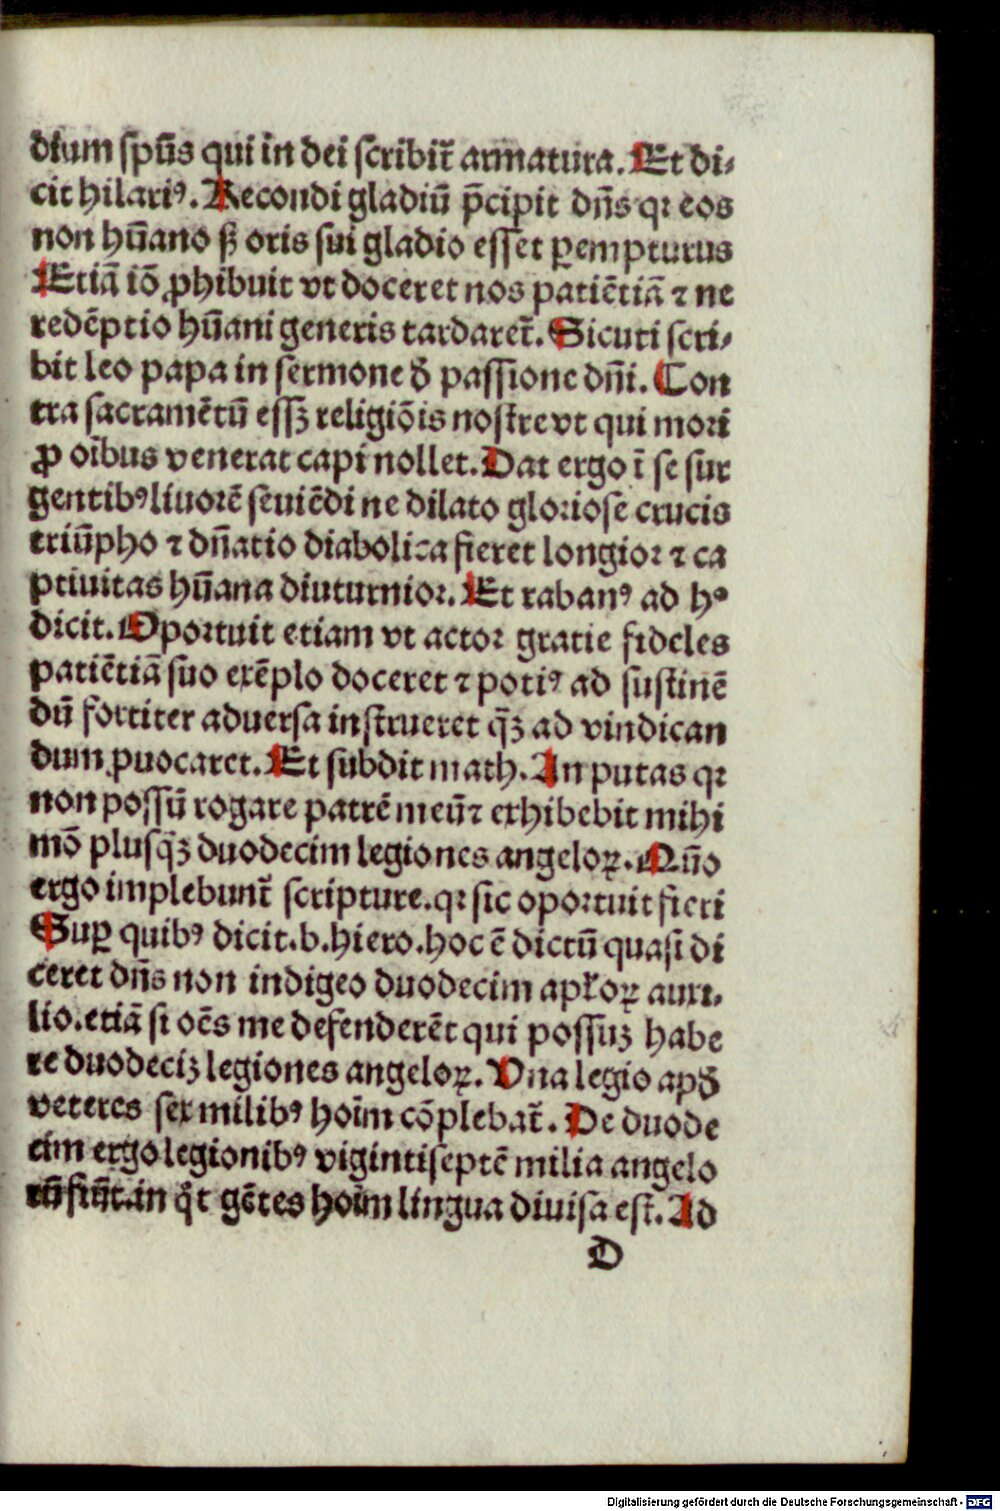 dium spūs qui in dei scribit̄ armatura. Et di⸗
cit hilariꝰ. Recondi gladiū p̄cipit dn̄s qꝛ eos
non hūano ſꝫ oris sui gladio esset ꝑempturus
Etiā iō ꝓhibuit vt doceret nos patiētiā ⁊ ne
redēptio hūani generis tardaret̄. Sicuti scri⸗
bit leo papa in sermone ꝺ̄ passione dn̄i. Con
tra sacramētū essꝫ religiōis nostre vt qui mori
ꝓ oībus venerat capi nollet. Dat ergo ī se sur
gentibꝰ liuorē seuiēdi ne dilato gloriose crucis
triūpho ⁊ dn̄atio diabolica fieret longior ⁊ ca
ptiuitas hūana diuturnior. Et rabanꝰ ad hᵒ
dicit. Oportuit etiam vt actor gratie fideles
patiētiā suo exēplo doceret ⁊ potiꝰ ad sustinē
dū fortiter aduersa instrueret q̄ꝫ ad vindican
dum ꝓuocaret. Et subdit math. An putas qꝛ
non possū rogare patrē meū ⁊ exhibebit mihi
mō plusq̄ꝫ duodecim legiones angeloꝝ. Quō
ergo implebunt̄ scripture. qꝛ sic oportuit fieri
Suꝑ quibꝰ dicit. b. hiero. hoc ē dictū quasi di
ceret dn̄s non indigeo duodecim apl̄oꝝ auxi⸗
lio. etiā si oēs me defenderēt qui possuꝫ habe
re duodeciꝫ legiones angeloꝝ. Vna legio apꝺ̄
veteres sex milibꝰ hoīm cōplebat̄. De duode
cim ergo legionibꝰ vigintiseptē milia angelo
rū fiūt. in qͦt gētes hoīm lingua diuisa est. Ad
D
Digitalisierung gefördert durch die Deutsche Forschungsgemeinschaft - DFG